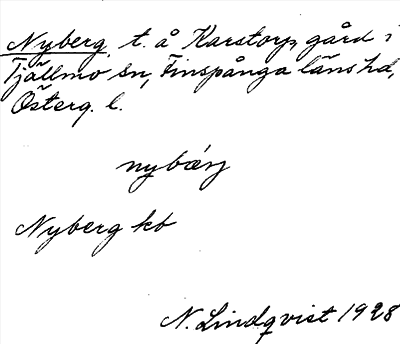 Nyberg, t. å Karstorps gård i
Tjällmo sn, Finspånga läns hd,
Österg. l.
nybærj
Nyberg kb
N. Lindqvist 1928